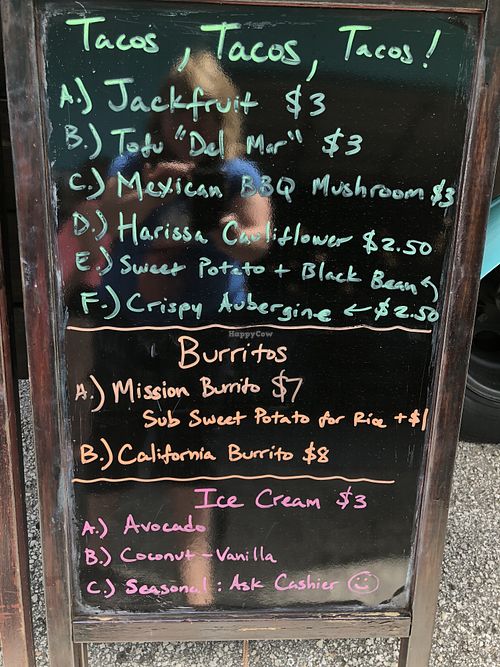 Tacos, Tacos, Tacos!
A.) Jackfruit $3
B.) Tofu "Del Mar" $3
C.) Mexican BBQ Mushroom $3
D.) Harissa Cauliflower $2.50
E.) Sweet Potato + Black Bean
F.) Crispy Aubergine ← $2.50
HappyCow
Burritos
A.) Mission Burrito $7
Sub Sweet Potato for Rice + $1
B.) California Burrito $8
Ice Cream $3
A.) Avocado
B.) Coconut - Vanilla
C.) Seasonal: Ask Cashier ☺